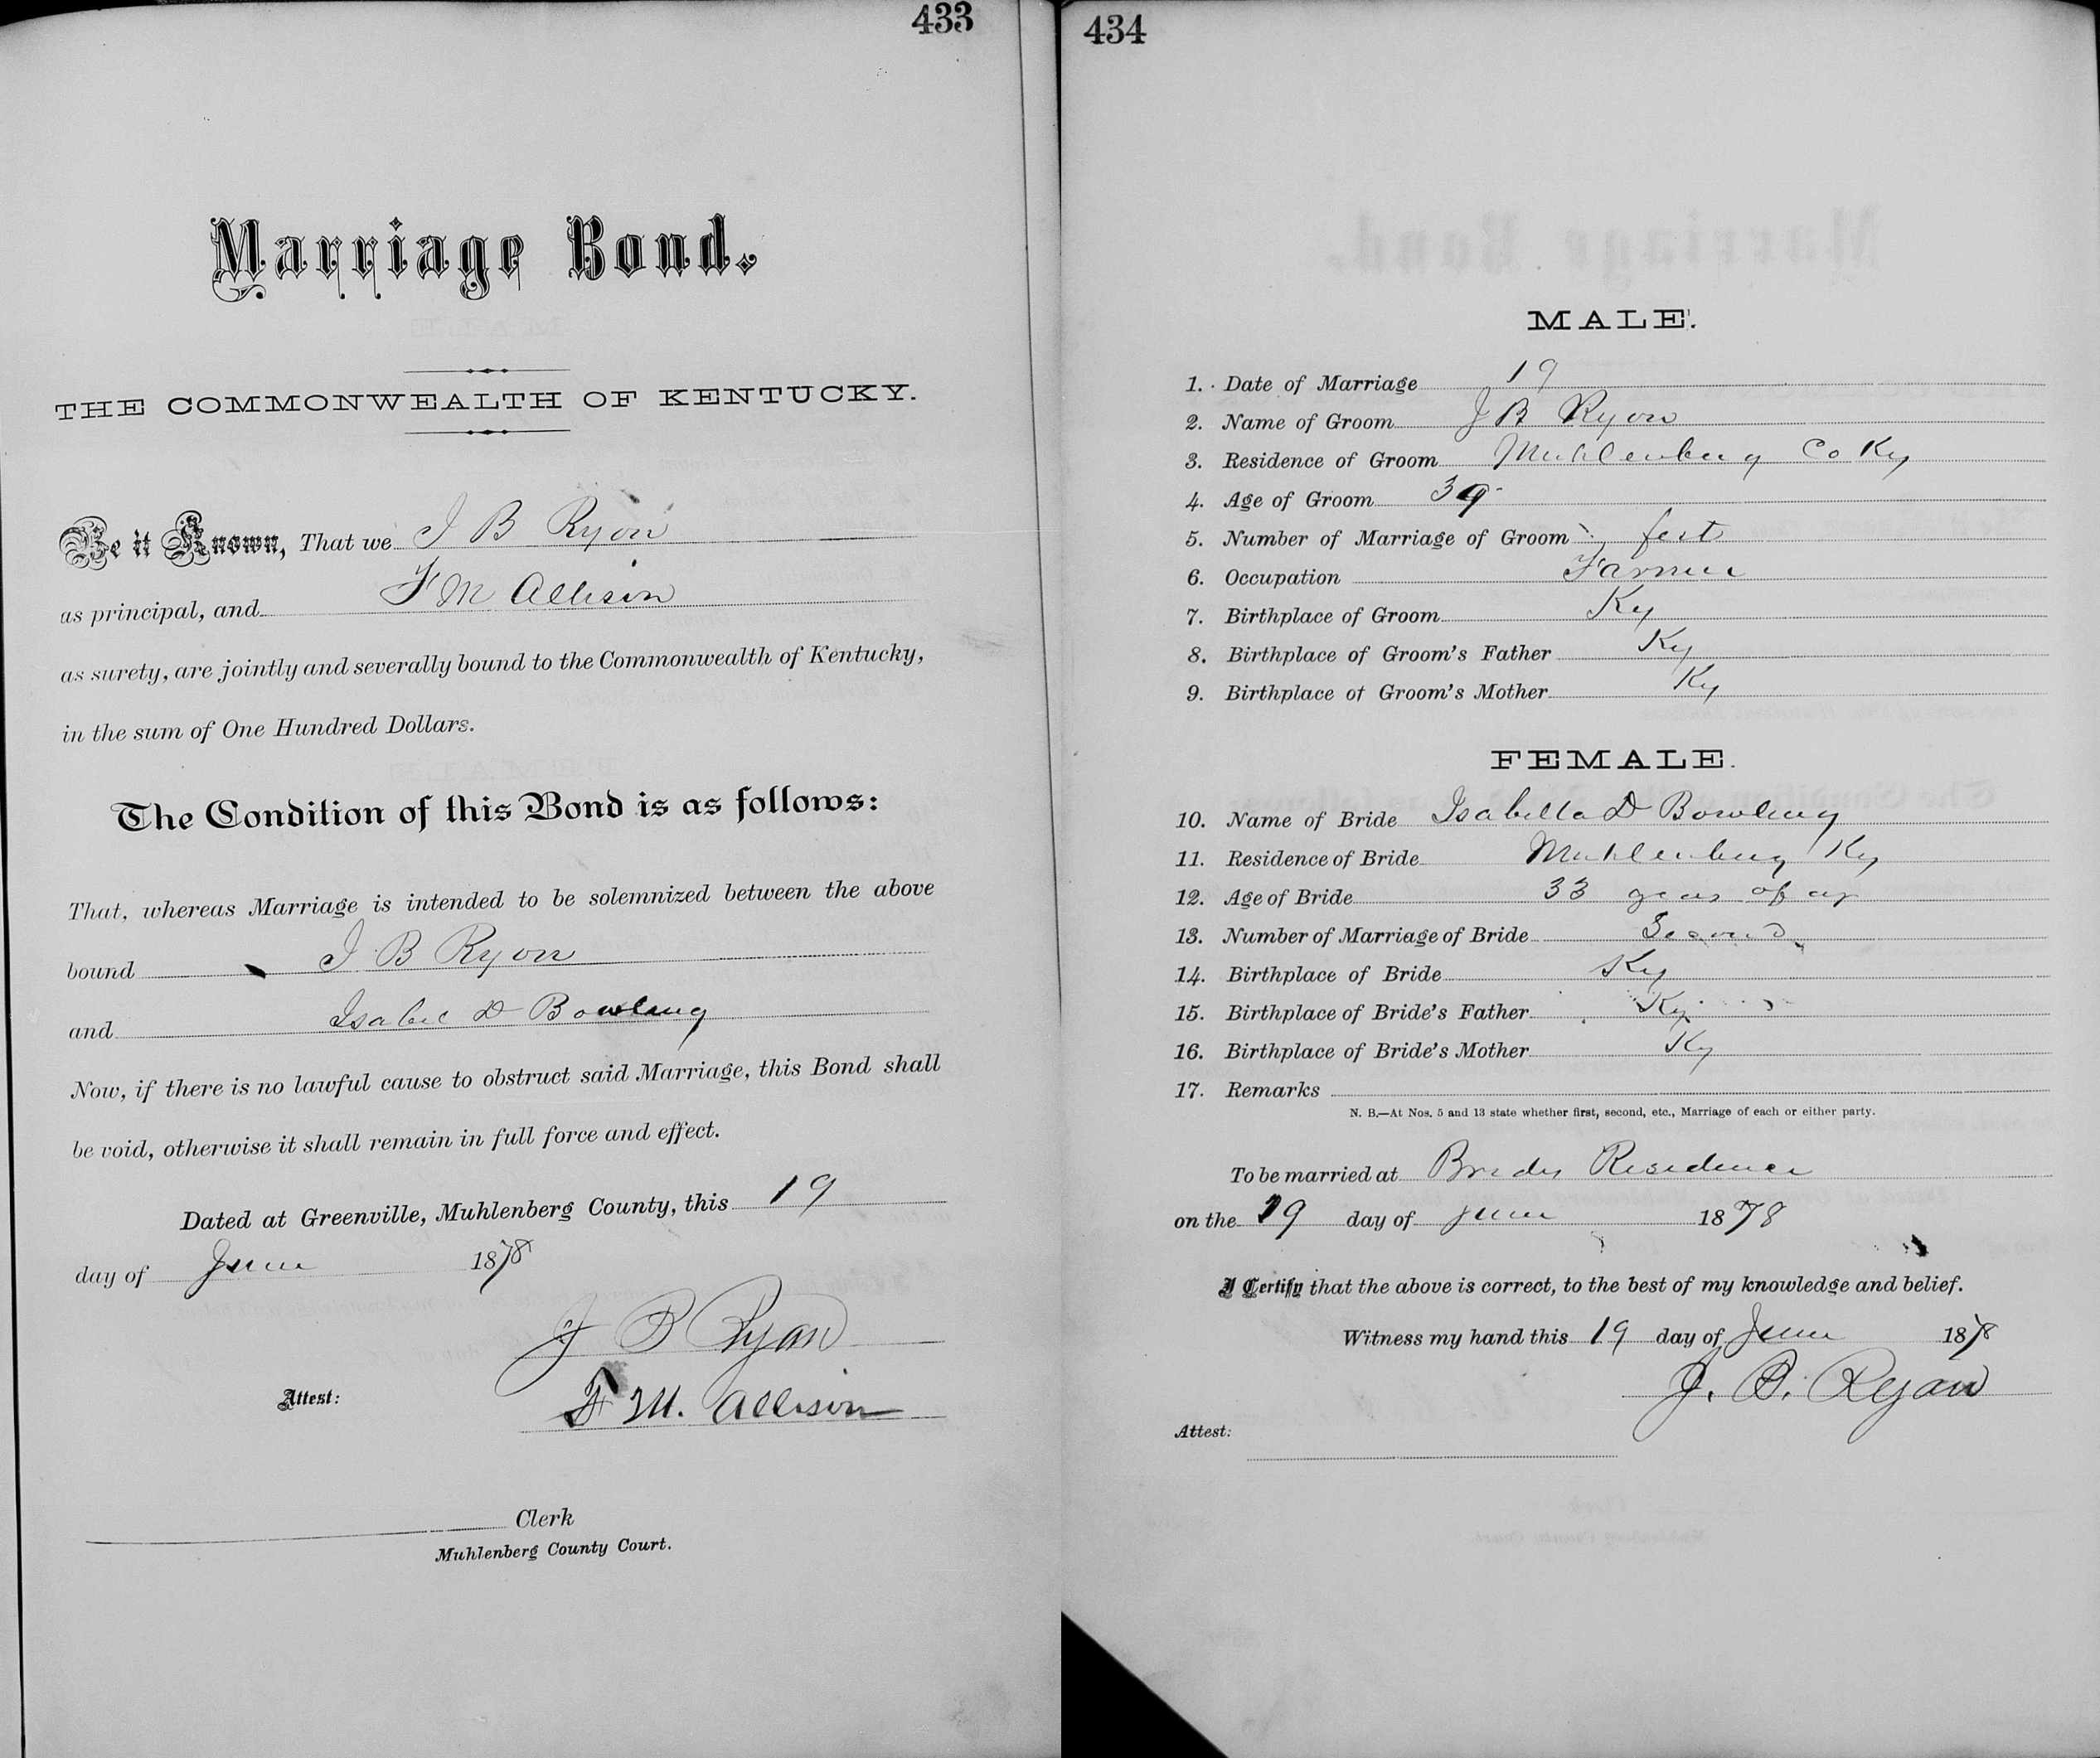 433
Marriage Bond.
THE COMMONWEALTH OF KENTUCKY.
Be it Known, That we J B Ryon
as principal, and F M Allison
as surety, are jointly and severally bound to the Commonwealth of Kentucky,
in the sum of One Hundred Dollars.
The Condition of this Bond is as follows:
That, whereas Marriage is intended to be solemnized between the above
bound J B Ryon
and Isabel D Bowling
Now, if there is no lawful cause to obstruct said Marriage, this Bond shall
be void, otherwise it shall remain in full force and effect.
Dated at Greenville, Muhlenberg County, this 19
day of June 1878
J B Ryan
Attest: F M. Allison
Clerk
Muhlenberg County Court.
434
MALE.
1. Date of Marriage 19
2. Name of Groom J B Ryon
3. Residence of Groom Muhlenburg Co Ky
4. Age of Groom 39
5. Number of Marriage of Groom first
6. Occupation Farmer
7. Birthplace of Groom Ky
8. Birthplace of Groom's Father Ky
9. Birthplace of Groom's Mother Ky
FEMALE.
10. Name of Bride Isabella D Bowling
11. Residence of Bride Muhlenburg Ky
12. Age of Bride 33 years of age
13. Number of Marriage of Bride Second
14. Birthplace of Bride Ky
15. Birthplace of Bride's Father Ky
16. Birthplace of Bride's Mother Ky
17. Remarks
N. B.—At Nos. 5 and 13 state whether first, second, etc., Marriage of each or either party.
To be married at Brides Residence
on the 19 day of June 1878
I Certify that the above is correct, to the best of my knowledge and belief.
Witness my hand this 19 day of June 1878
J. B. Ryan
Attest: